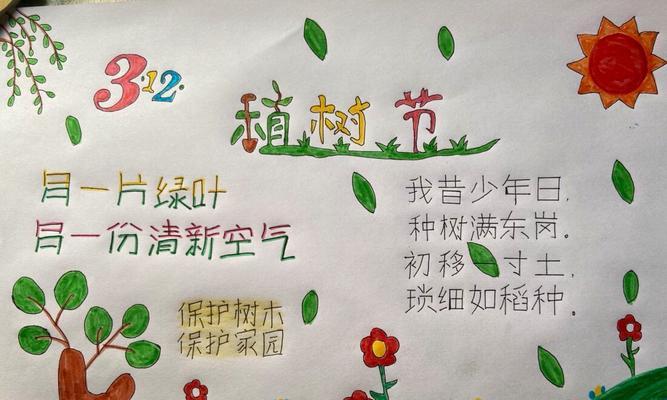 3·12·
植树节
一片绿叶
一份清新空气
保护树木
保护家园
我昔少年日,
种树满东岗。
初移 寸土,
琐细如稻种。